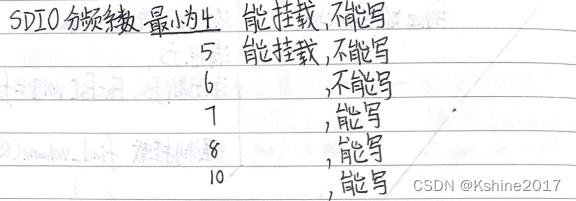 SDIO分频系数 最小为4 能挂载,不能写
5 能挂载,不能写
6 ,不能写
7 ,能写
8 ,能写
10 ,能写
CSDN @Kshine2017